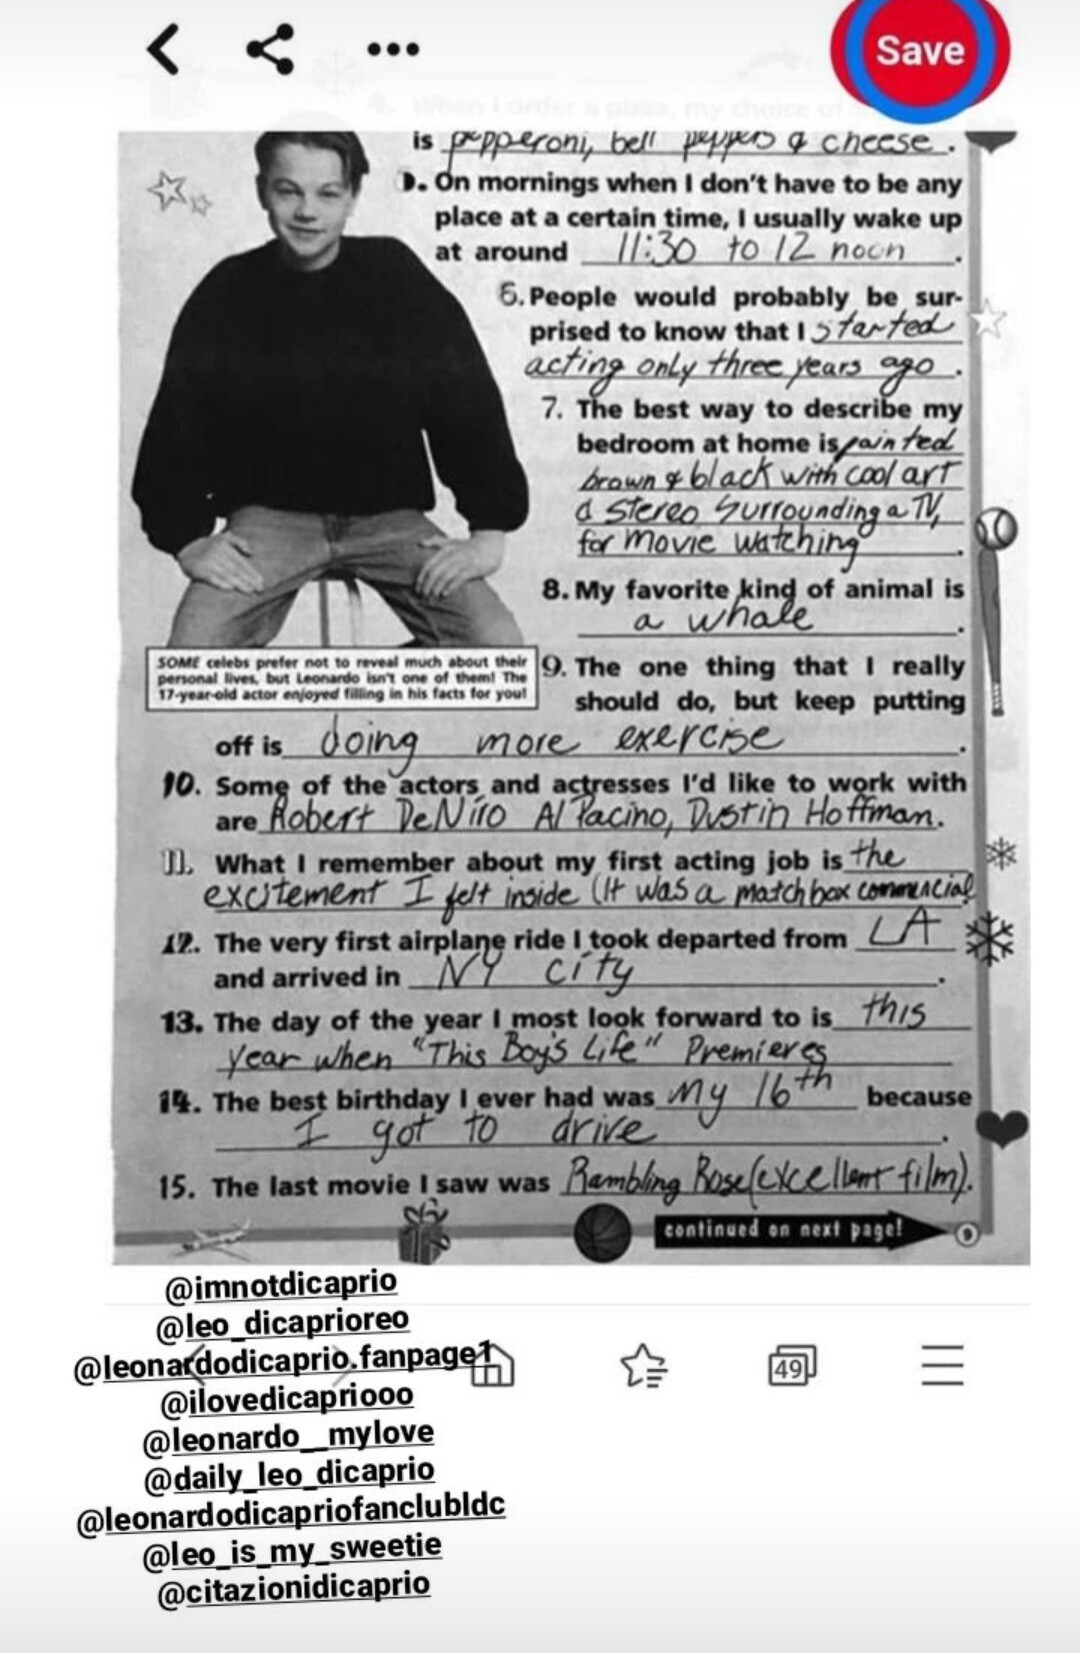 Save
is pepperoni, bell peppers & cheese.
On mornings when I don't have to be any
place at a certain time, I usually wake up
at around 11:30 to 12 noon.
6. People would probably be sur-
prised to know that I started
acting only three years ago.
7. The best way to describe my
bedroom at home is painted
brown & black with cool art
& stereo surrounding a TV,
for movie watching.
8. My favorite kind of animal is
a whale.
SOME celebs prefer not to reveal much about their
personal lives, but Leonardo isn't one of them! The
17-year-old actor enjoyed filling in his facts for you!
9. The one thing that I really
should do, but keep putting
off is doing more exercise.
10. Some of the actors and actresses I'd like to work with
are Robert DeNiro Al Pacino, Dustin Hoffman.
11. What I remember about my first acting job is the
excitement I felt inside (It was a matchbox commercial
12. The very first airplane ride I took departed from LA
and arrived in NY city.
13. The day of the year I most look forward to is this
year when "This Boy's Life" Premieres
14. The best birthday I ever had was my 16th because
I got to drive.
15. The last movie I saw was Rambling Rose (excellent film).
continued on next page! 9
@imnotdicaprio
@leo_dicaprioreo
@leonardodicaprio.fanpage1
49
@ilovedicapriooo
@leonardo__mylove
@daily_leo_dicaprio
@leonardodicapriofanclubldc
@leo_is_my_sweetie
@citazionidicaprio